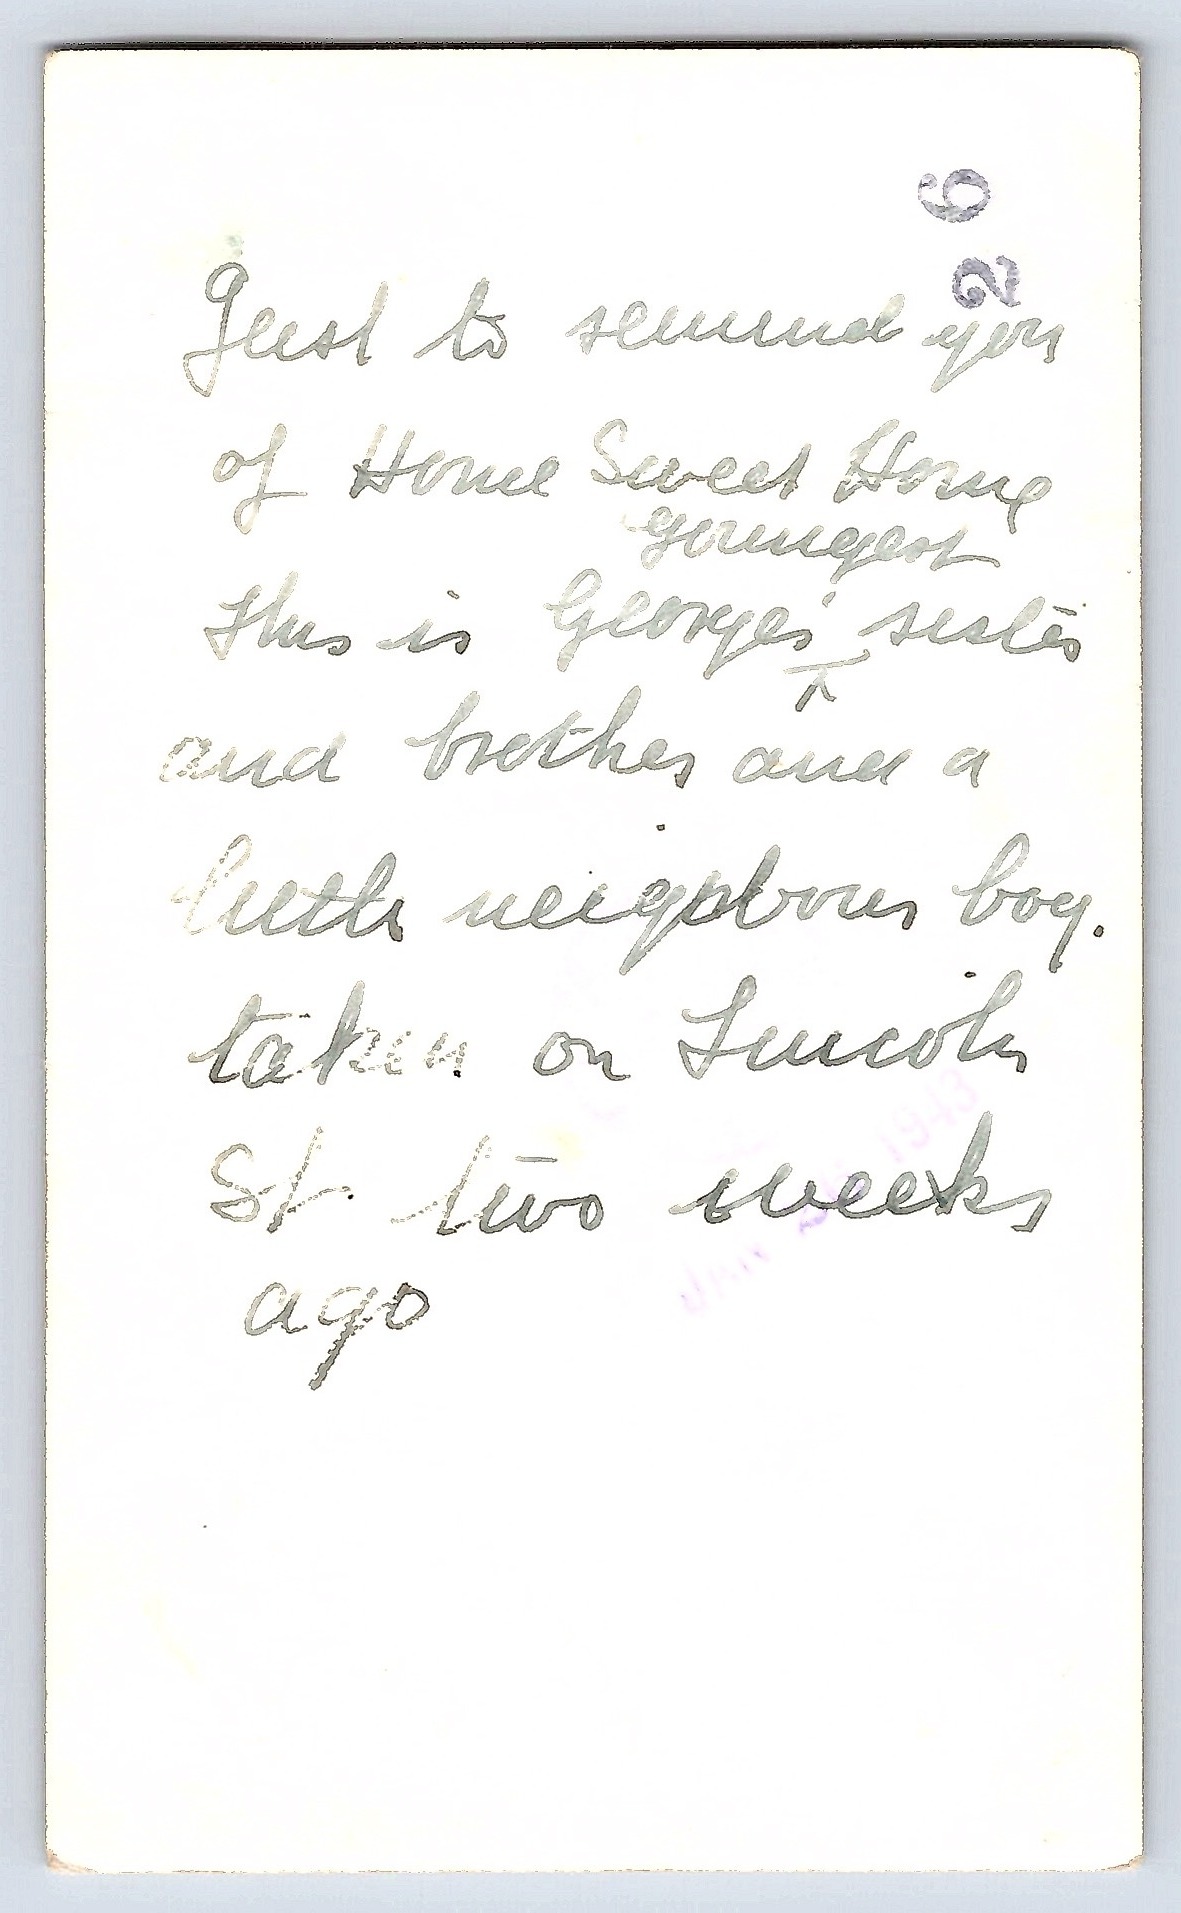 26
Just to remind you
of Home Sweet Home
youngest
this is George's sister
and brother and a
little neighbour boy.
taken on Lincoln
St. two weeks
ago
JAN 1943